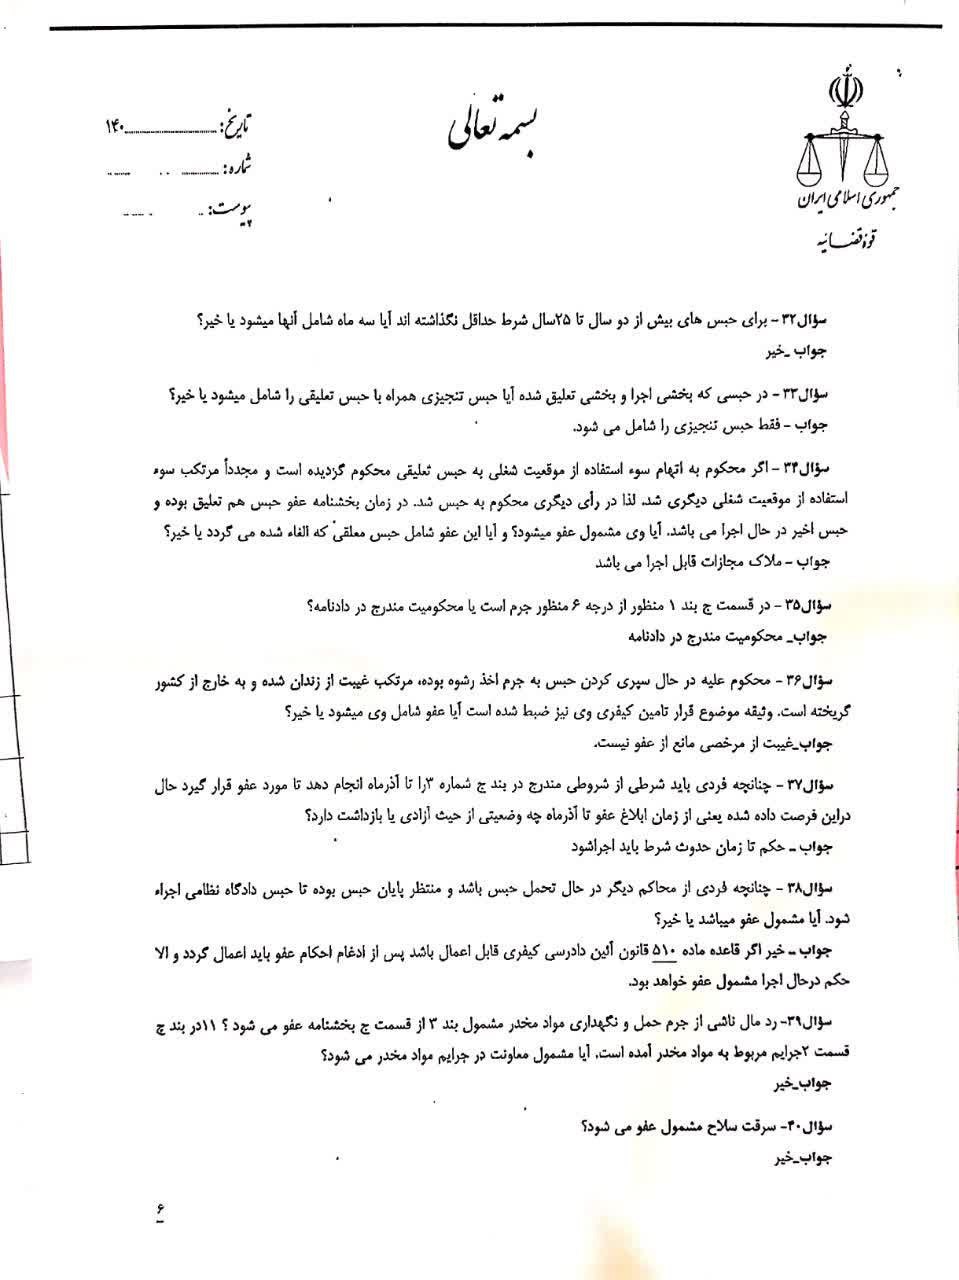 بسمه تعالی
جمهوری اسلامی ایران
قوهٔ قضائیه
تاریخ: ........................۱۴۰
شماره: ............ .. ......
پیوست: .. . .....
سؤال۳۲- برای حبس های بیش از دو سال تا ۲۵سال شرط حداقل نگذاشته اند آیا سه ماه شامل آنها میشود یا خیر؟
جواب _خیر
سؤال۳۳- در حبسی که بخشی اجرا و بخشی تعلیق شده آیا حبس تنجیزی همراه با حبس تعلیقی را شامل میشود یا خیر؟
جواب - فقط حبس تنجیزی را شامل می شود.
سؤال۳۴- اگر محکوم به اتهام سوء استفاده از موقعیت شغلی به حبس تعلیقی محکوم گردیده است و مجدداً مرتکب سوء
استفاده از موقعیت شغلی دیگری شد. لذا در رأی دیگری محکوم به حبس شد. در زمان بخشنامه عفو حبس هم تعلیق بوده و
حبس اخیر در حال اجرا می باشد. آیا وی مشمول عفو میشود؟ و آیا این عفو شامل حبس معلقی که الغاء شده می گردد یا خیر؟
جواب - ملاک مجازات قابل اجرا می باشد
سؤال۳۵- در قسمت ج بند ۱ منظور از درجه ۶ منظور جرم است یا محکومیت مندرج در دادنامه؟
جواب_ محکومیت مندرج در دادنامه
سؤال۳۶- محکوم علیه در حال سپری کردن حبس به جرم اخذ رشوه بوده، مرتکب غیبت از زندان شده و به خارج از کشور
گریخته است. وثیقه موضوع قرار تامین کیفری وی نیز ضبط شده است آیا عفو شامل وی میشود یا خیر؟
جواب_غیبت از مرخصی مانع از عفو نیست.
سؤال۳۷- چنانچه فردی باید شرطی از شروطی مندرج در بند ج شماره ۳را تا آذرماه انجام دهد تا مورد عفو قرار گیرد حال
دراین فرصت داده شده یعنی از زمان ابلاغ عفو تا آذرماه چه وضعیتی از حیث آزادی یا بازداشت دارد؟
جواب - حکم تا زمان حدوث شرط باید اجراشود
سؤال۳۸- چنانچه فردی از محاکم دیگر در حال تحمل حبس باشد و منتظر پایان حبس بوده تا حبس دادگاه نظامی اجراء
شود. آیا مشمول عفو میباشد یا خیر؟
جواب - خیر اگر قاعده ماده ۵۱۰ قانون آئین دادرسی کیفری قابل اعمال باشد پس از ادغام احکام عفو باید اعمال گردد و الا
حکم درحال اجرا مشمول عفو خواهد بود.
سؤال۳۹- رد مال ناشی از جرم حمل و نگهداری مواد مخدر مشمول بند ۳ از قسمت ج بخشنامه عفو می شود ؟ ۱۱در بند چ
قسمت ۲جرایم مربوط به مواد مخدر آمده است. آیا مشمول معاونت در جرایم مواد مخدر می شود؟
جواب_خیر
سؤال۴۰- سرقت سلاح مشمول عفو می شود؟
جواب_خیر
۶